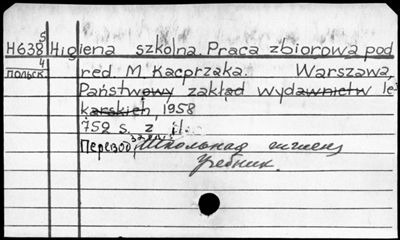 5
H638 Higiena szkolna. Praca zbiorowa pod
4
польск. red. M. Kacprzaka. Warszawa,
Państwowy zakład wydawnictw le-
karskich, 1958
752 s. z il.
Перевод: Школьная гигиена
Учебник.